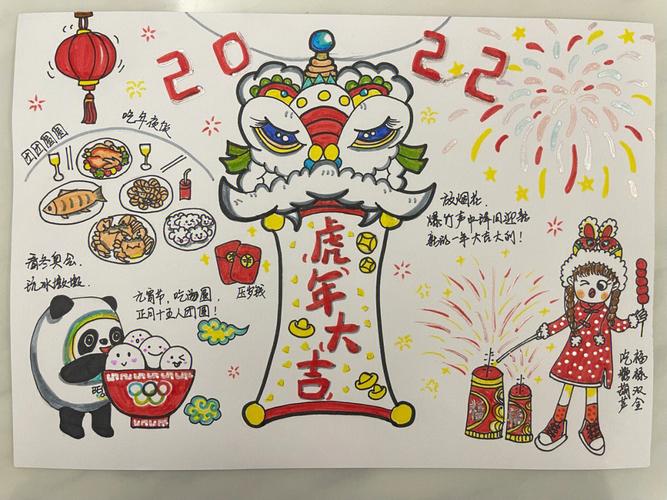 2022
吃年夜饭
团团圆圆
虎年大吉
放烟花.
爆竹声中辞旧迎新
新的一年大吉大利!
看冬奥会.
玩冰墩墩.
元宵节,吃汤圆,
正月十五人团圆!
压岁钱
福禄双全
吃糖葫芦